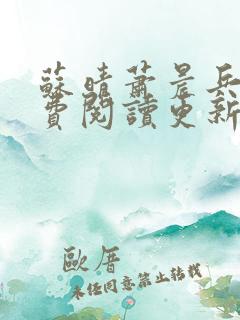 蘇晴蕭晨兵
費閱讀更新
歐厝
未經同意禁止轉載